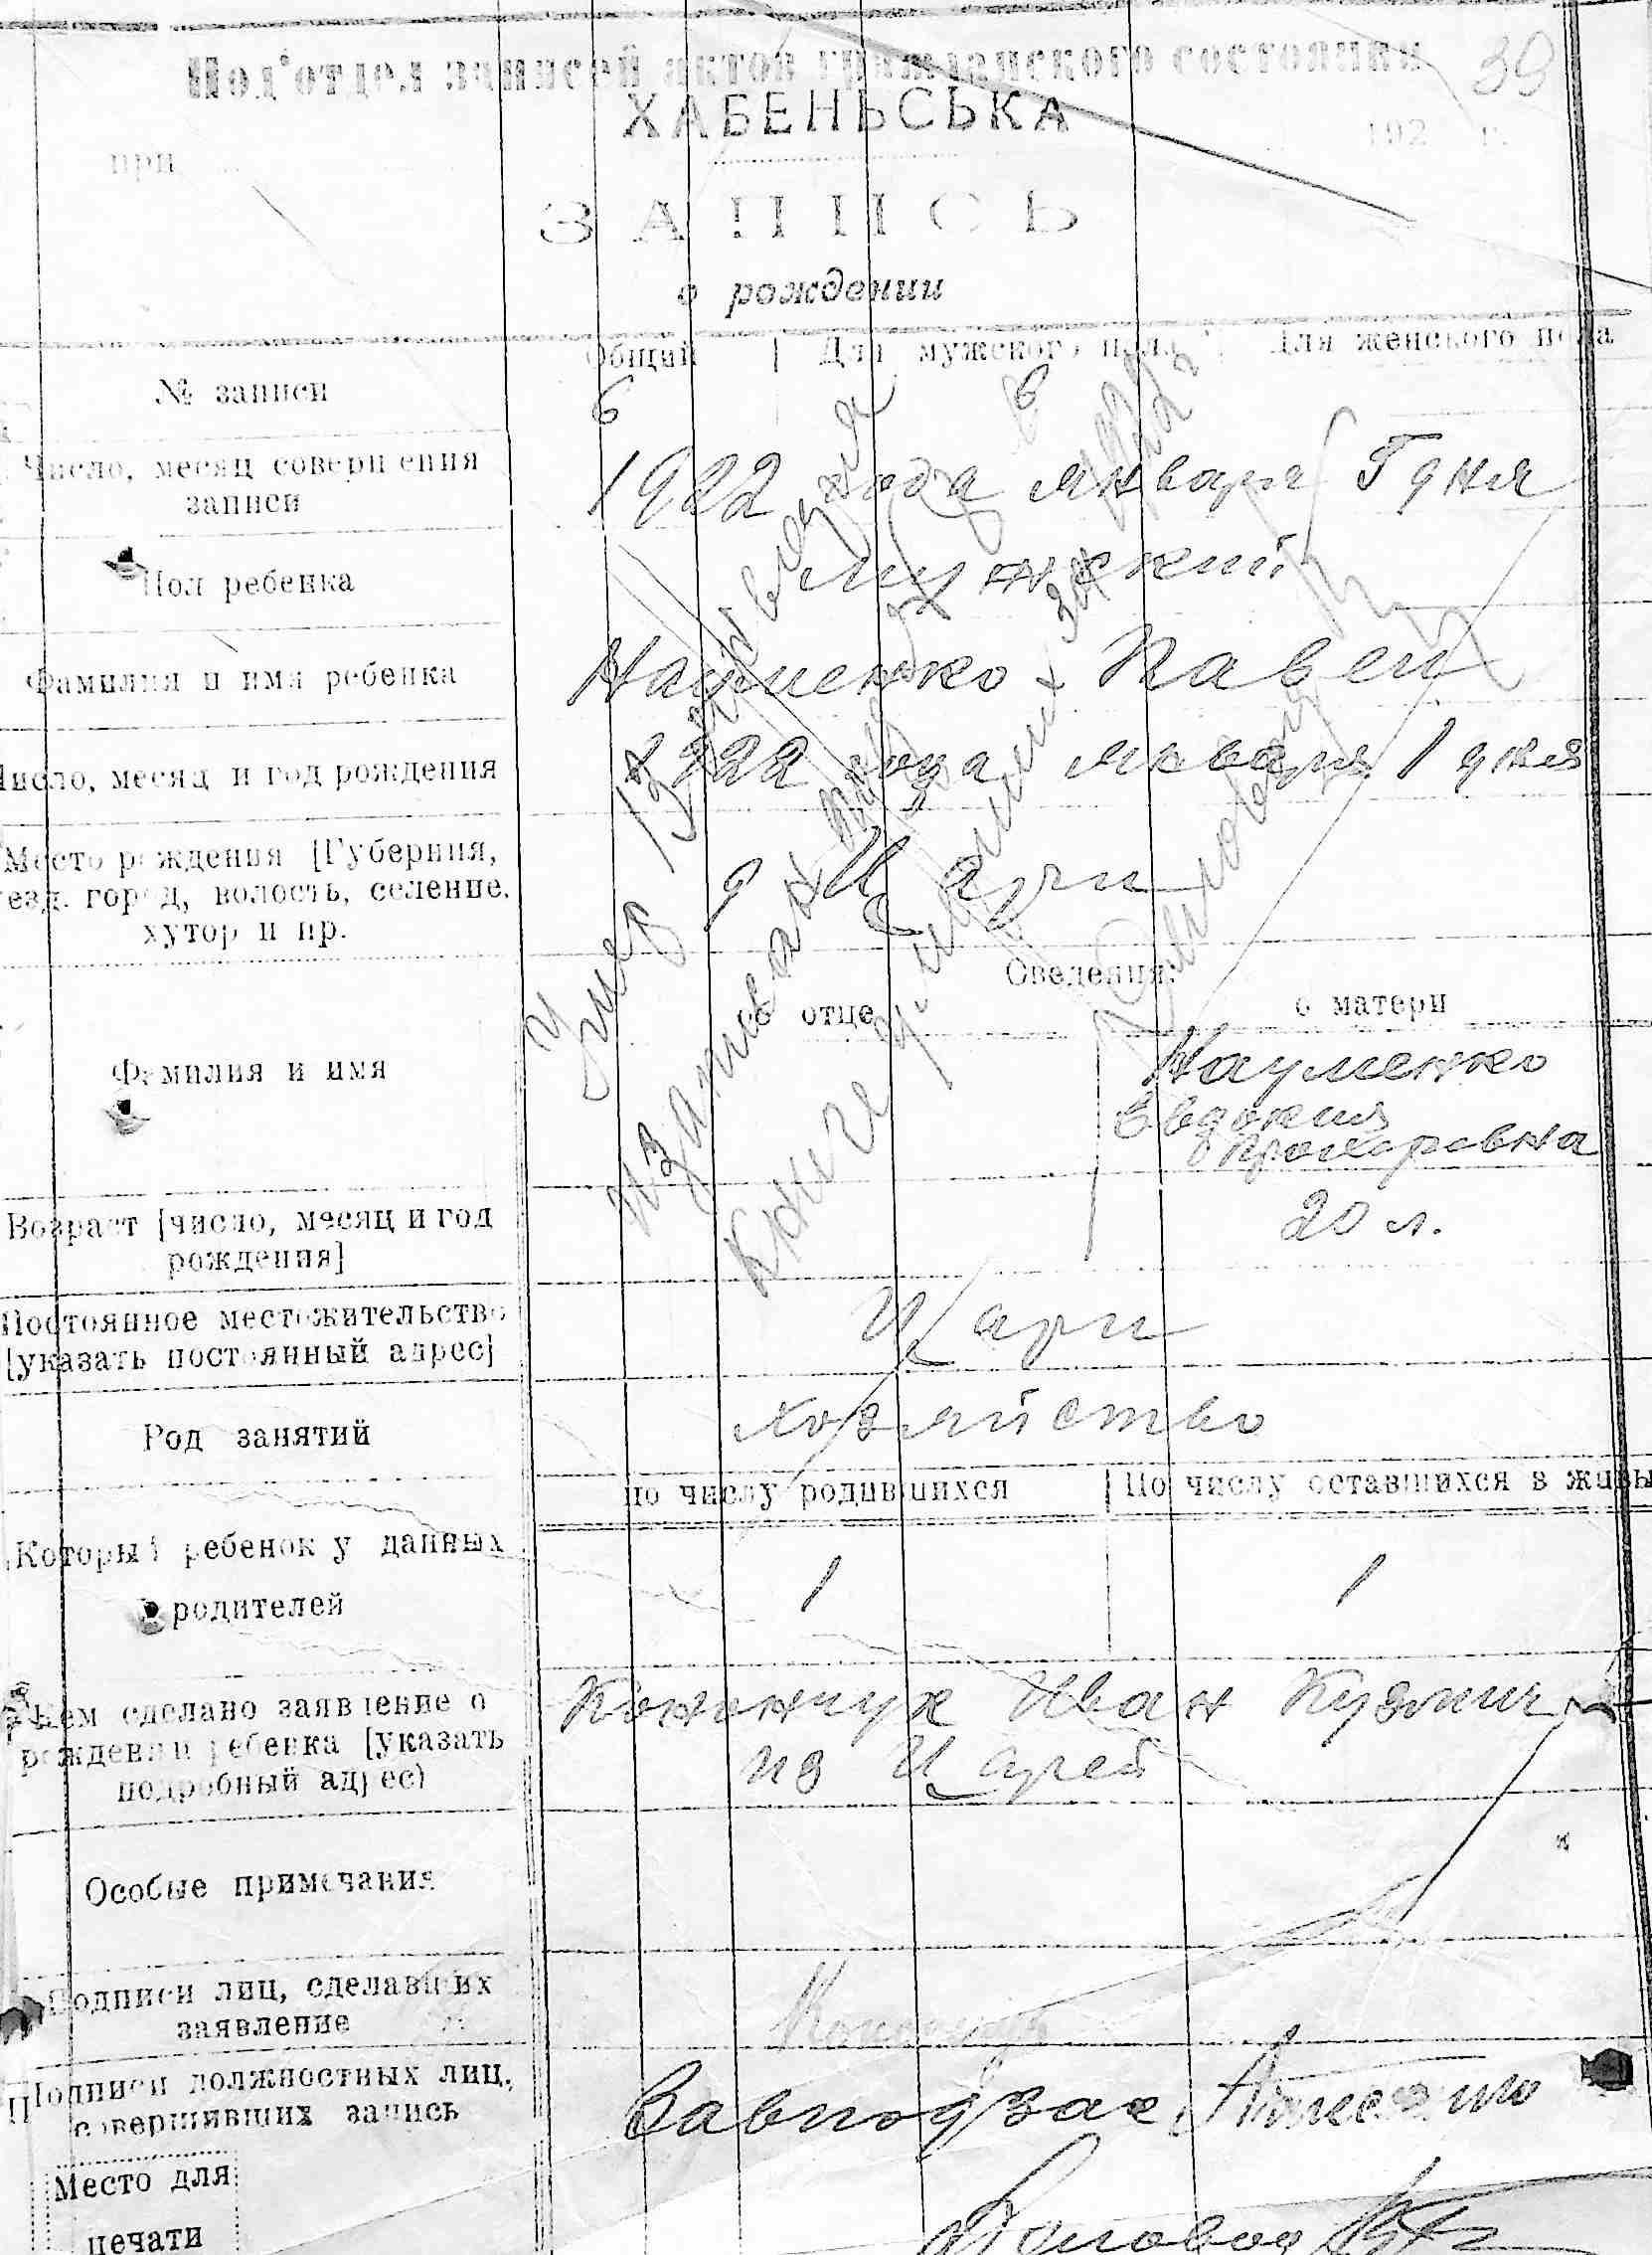 Подотдел записей актов гражданского состояния
39
ХАБЕНЬСЬКА
при
192 г.
ЗАПИСЬ
о рождении
Общий Для мужского пола Для женского пола
№ записи
6 6
Число, месяц совершения
записи
1922 года января 5 дня
Пол ребенка
Мужский
Фамилия и имя ребенка
Науменко Павел
Число, месяц и год рождения
1922 года января 1 дня
Место рождения [Губерния,
уезд, город, волость, селение,
хутор и пр.
д Цари
Сведения:
об отце
о матери
Фамилия и имя
Науменко
Евдокия
Прохоровна
Возраст [число, месяц и год
рождения]
20 л.
Постоянное местожительство
[указать постоянный адрес]
Цари
Род занятий
хозяйство
по числу родившихся По числу оставшихся в живы
Который ребенок у данных
родителей
1 1
Кем сделано заявление о
рождении ребенка [указать
подробный адрес)
Конончук Иван Кузмич
из Царей
Особые примечания
Подписи лиц, сделавших
заявление
Подписи должностных лиц,
совершивших запись
Завподзаг
Место для
печати
Умер 13
и записан
книге умерших за 1922 г